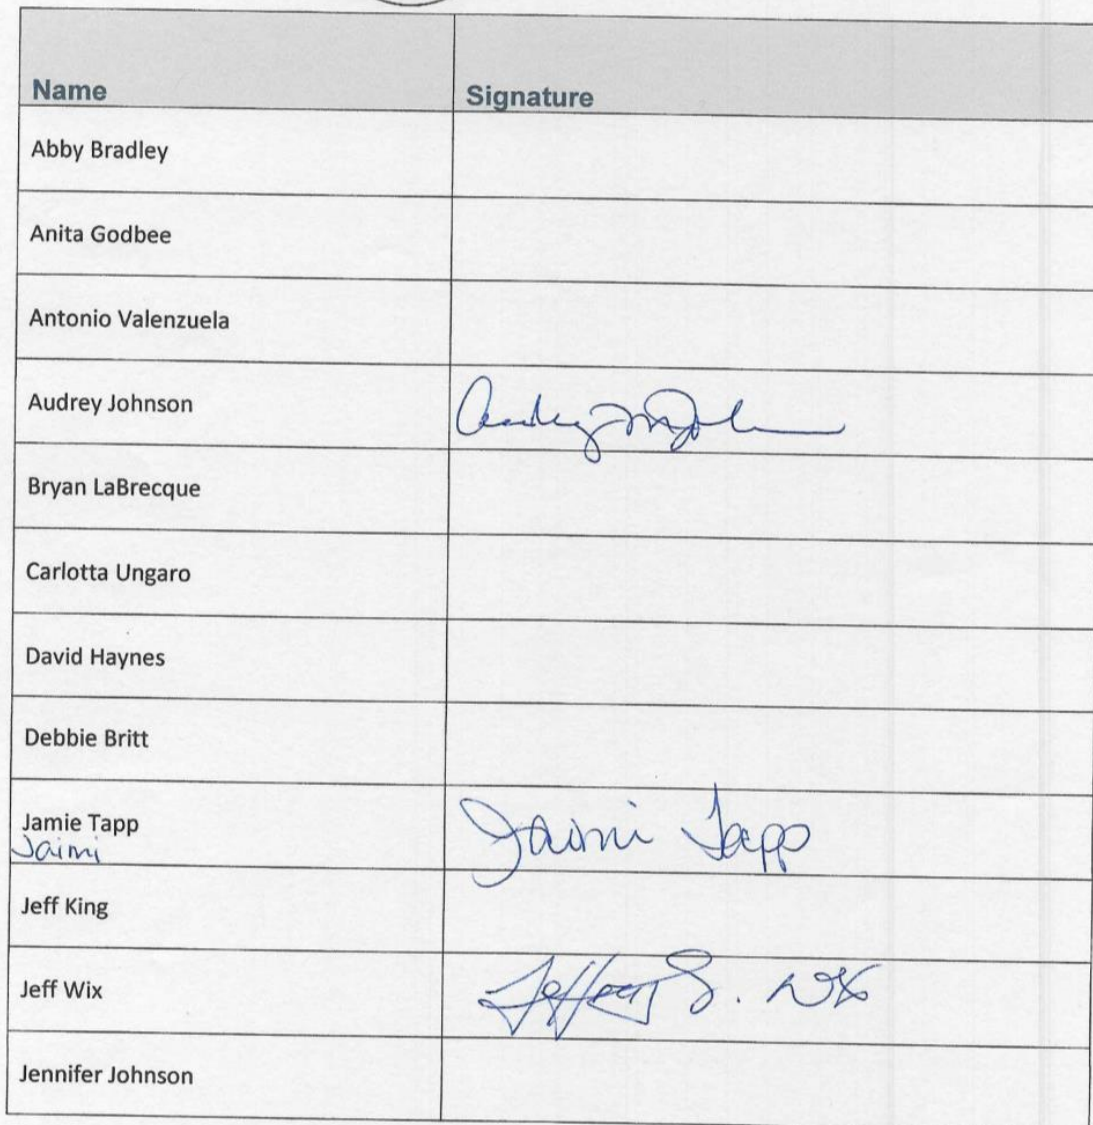 Name Signature
Abby Bradley
Anita Godbee
Antonio Valenzuela
Audrey Johnson Audrey M Joh
Bryan LaBrecque
Carlotta Ungaro
David Haynes
Debbie Britt
Jamie Tapp Jaimi Tapp
Jaimi
Jeff King
Jeff Wix Jeffery S. Wix
Jennifer Johnson